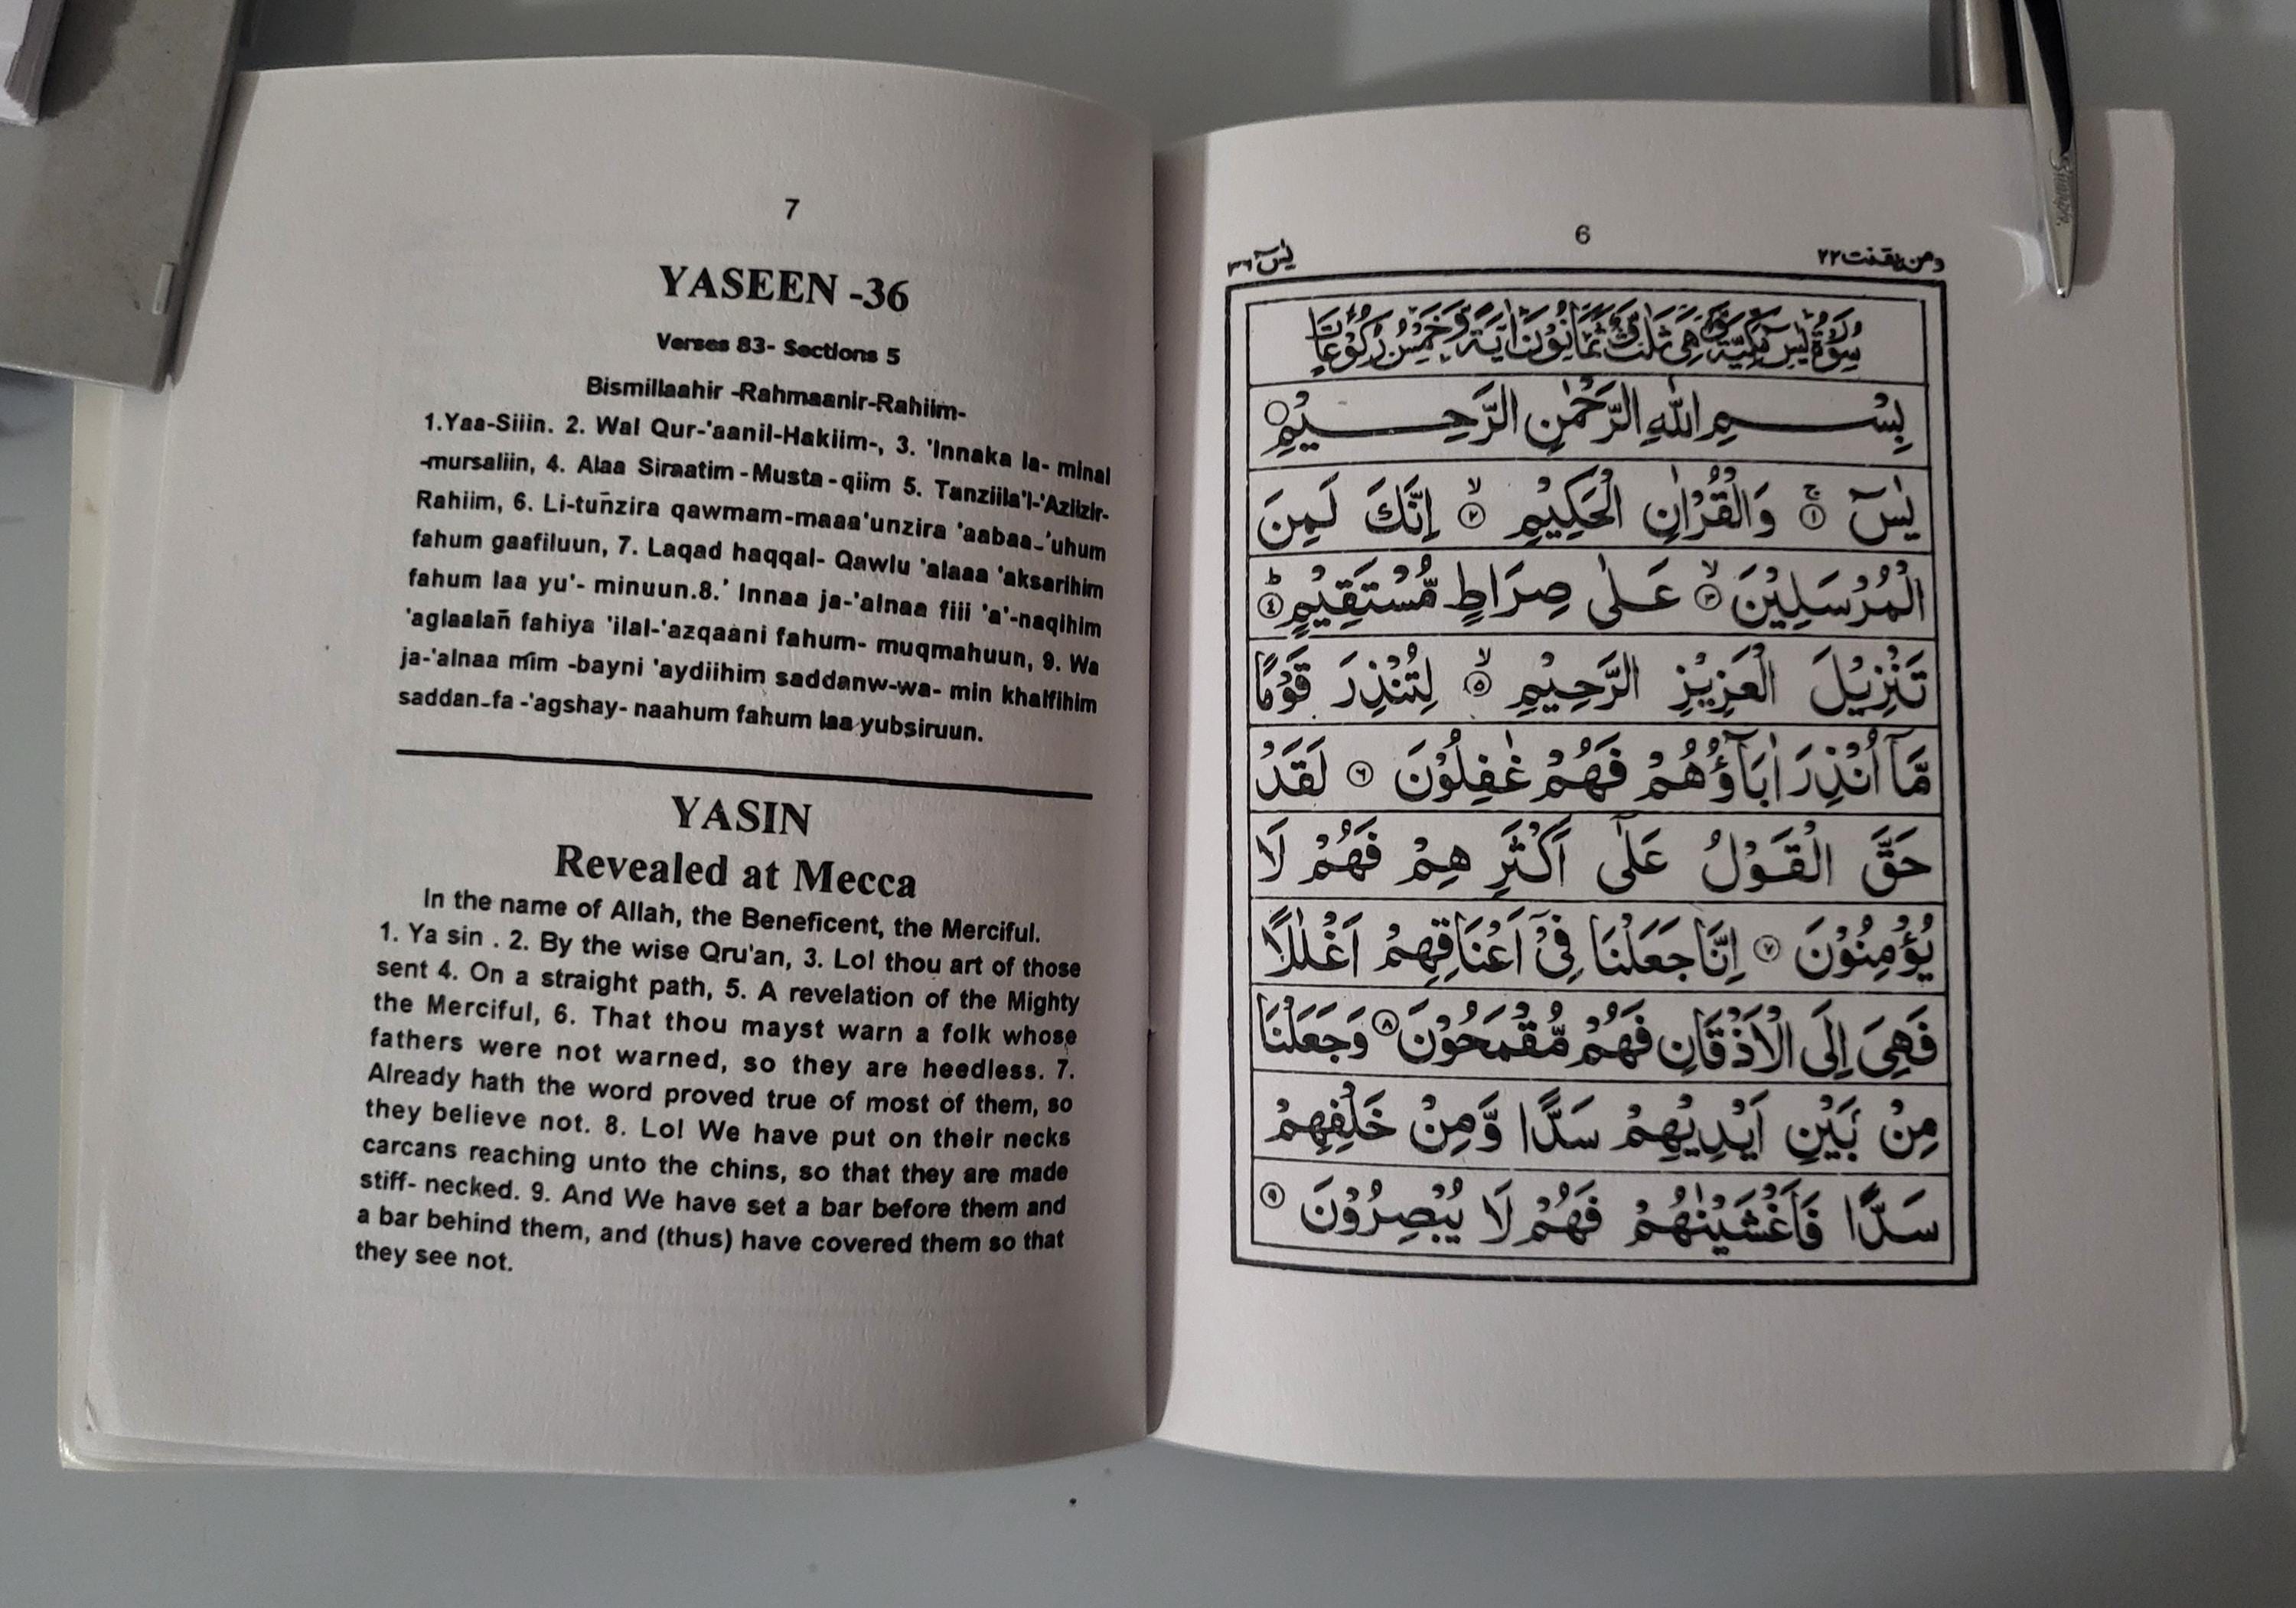 7
YASEEN -36
Verses 83- Sections 5
Bismillaahir -Rahmaanir-Rahiim-
1.Yaa-Siiin. 2. Wal Qur-'aanil-Hakiim-, 3. 'Innaka la- minal
-mursaliin, 4. Alaa Siraatim - Musta - qiim 5. Tanziila'l-'Aziizir-
Rahiim, 6. Li-tuñzira qawmam-maaa'unzira 'aabaa-'uhum
fahum gaafiluun, 7. Laqad haqqal- Qawlu 'alaaa 'aksarihim
fahum laa yu'- minuun.8.' Innaa ja-'alnaa fiii 'a'-naqihim
'aglaalañ fahiya 'ilal-'azqaani fahum- muqmahuun, 9. Wa
ja-'alnaa mim -bayni 'aydiihim saddanw-wa- min khalfihim
saddan-fa -'agshay- naahum fahum laa yubsiruun.
YASIN
Revealed at Mecca
In the name of Allah, the Beneficent, the Merciful.
1. Ya sin . 2. By the wise Qru'an, 3. Lo! thou art of those
sent 4. On a straight path, 5. A revelation of the Mighty
the Merciful, 6. That thou mayst warn a folk whose
fathers were not warned, so they are heedless. 7.
Already hath the word proved true of most of them, so
they believe not. 8. Lo! We have put on their necks
carcans reaching unto the chins, so that they are made
stiff- necked. 9. And We have set a bar before them and
a bar behind them, and (thus) have covered them so that
they see not.
6
ومن يقنت ٢٢
يٰسٓ ٣٦
سُوْرَةُ يٰسٓ مَكِّيَّةٌ وَّهِىَ ثَلٰثٌ وَّثَمَانُوْنَ اٰيَةً وَّخَمْسُ رُكُوْعَاتٍ
بِسْمِ اللّٰهِ الرَّحْمٰنِ الرَّحِيْمِ
يٰسٓ ۚ ١ وَالْقُرْاٰنِ الْحَكِيْمِ ۙ ٢ اِنَّكَ لَمِنَ
الْمُرْسَلِيْنَ ۙ ٣ عَلٰى صِرَاطٍ مُّسْتَقِيْمٍ ؕ ٤
تَنْزِيْلَ الْعَزِيْزِ الرَّحِيْمِ ۙ ٥ لِتُنْذِرَ قَوْمًا
مَّآ اُنْذِرَ اٰبَآؤُهُمْ فَهُمْ غٰفِلُوْنَ ٦ لَقَدْ
حَقَّ الْقَوْلُ عَلٰٓى اَكْثَرِ هِمْ فَهُمْ لَا
يُؤْمِنُوْنَ ٧ اِنَّا جَعَلْنَا فِىْٓ اَعْنَاقِهِمْ اَغْلٰلًا
فَهِىَ اِلَى الْاَذْقَانِ فَهُمْ مُّقْمَحُوْنَ ٨ وَجَعَلْنَا
مِنْۢ بَيْنِ اَيْدِيْهِمْ سَدًّا وَّمِنْ خَلْفِهِمْ
سَدًّا فَاَغْشَيْنٰهُمْ فَهُمْ لَا يُبْصِرُوْنَ ٩